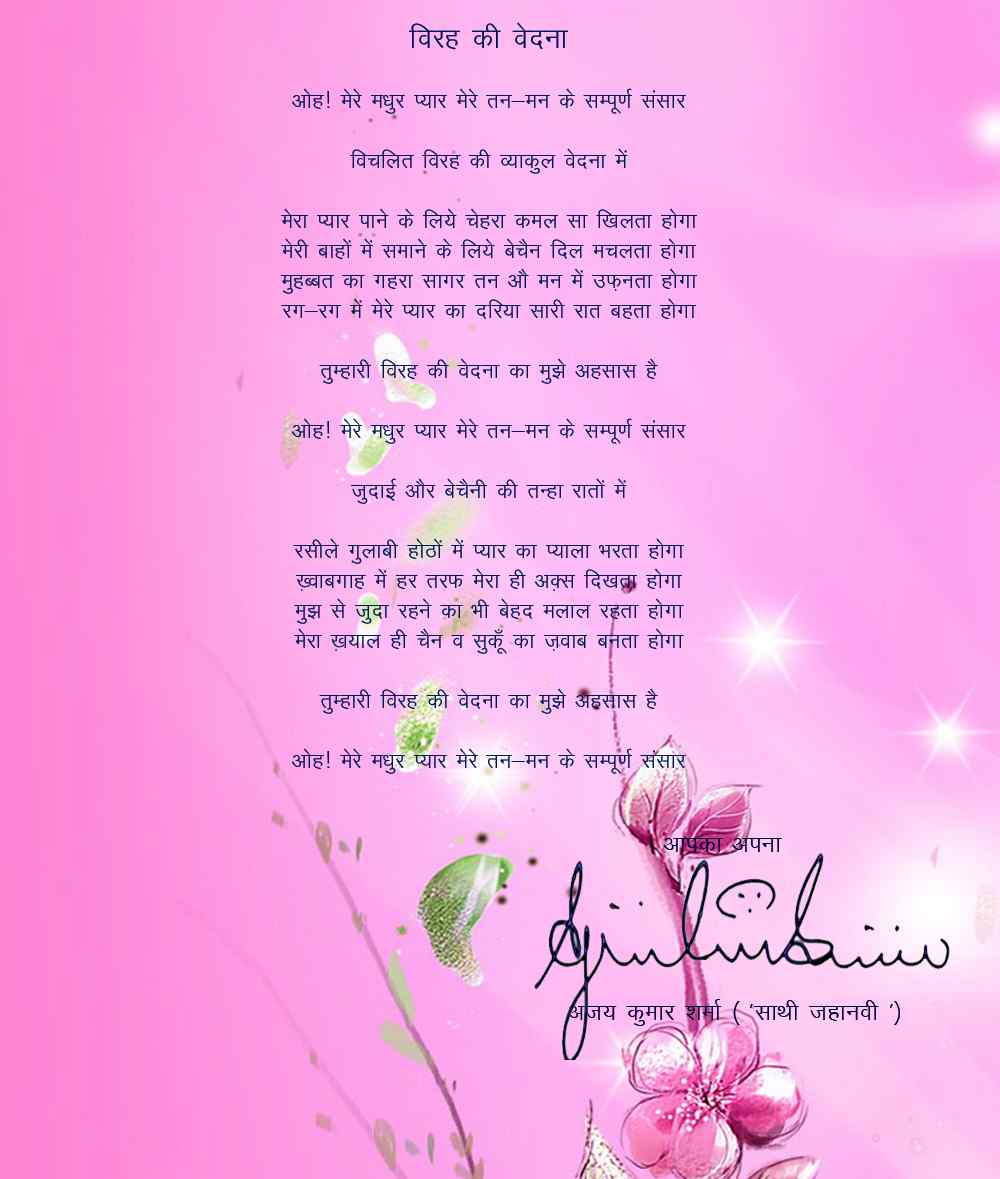 विरह की वेदना
ओह! मेरे मधुर प्यार मेरे तन–मन के सम्पूर्ण संसार
विचलित विरह की व्याकुल वेदना में
मेरा प्यार पाने के लिये चेहरा कमल सा खिलता होगा
मेरी बाहों में समाने के लिये बेचैन दिल मचलता होगा
मुहब्बत का गहरा सागर तन औ मन में उफ़नता होगा
रग–रग में मेरे प्यार का दरिया सारी रात बहता होगा
तुम्हारी विरह की वेदना का मुझे अहसास है
ओह! मेरे मधुर प्यार मेरे तन–मन के सम्पूर्ण संसार
जुदाई और बेचैनी की तन्हा रातों में
रसीले गुलाबी होठों में प्यार का प्याला भरता होगा
ख़्वाबगाह में हर तरफ मेरा ही अक़्स दिखता होगा
मुझ से जुदा रहने का भी बेहद मलाल रहता होगा
मेरा ख़याल ही चैन व सुकूँ का ज़वाब बनता होगा
तुम्हारी विरह की वेदना का मुझे अहसास है
ओह! मेरे मधुर प्यार मेरे तन–मन के सम्पूर्ण संसार
आपका अपना
अजय कुमार शर्मा ( ‘साथी जहानवी ’)